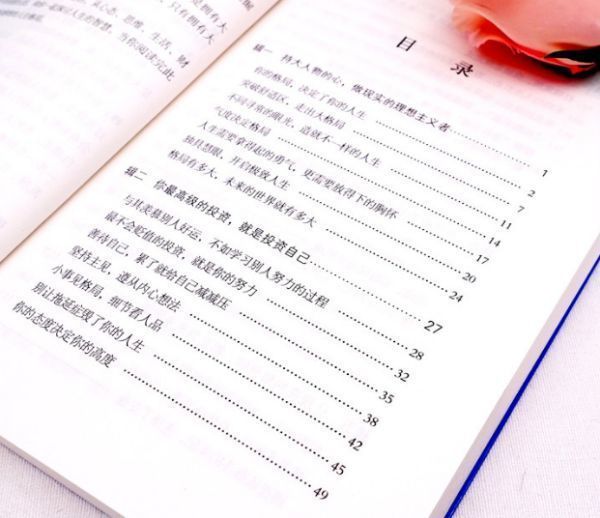 只有拥有大
心态、思维、生活、财
人生的智慧。当你阅读完此
目 录
辑一 持大人物的心，做现实的理想主义者 ………… 1
你的格局，决定了你的人生 ………… 2
突破舒适区，走出大格局 ………… 7
不同寻常的眼光，造就不一样的人生 ………… 11
气度决定格局 ………… 14
人生需要拿得起的勇气，更需要放得下的胸怀 ………… 17
独具慧眼，开启极致人生 ………… 20
格局有多大，未来的世界就有多大 ………… 24
辑二 你最高级的投资，就是投资自己 ………… 27
与其羡慕别人好运，不如学习别人努力的过程 ………… 28
最不会贬值的投资，就是你的努力 ………… 32
善待自己，累了就给自己减减压 ………… 35
坚持主见，遵从内心想法 ………… 38
小事见格局，细节看人品 ………… 42
别让拖延症毁了你的人生 ………… 45
你的态度决定你的高度 ………… 49